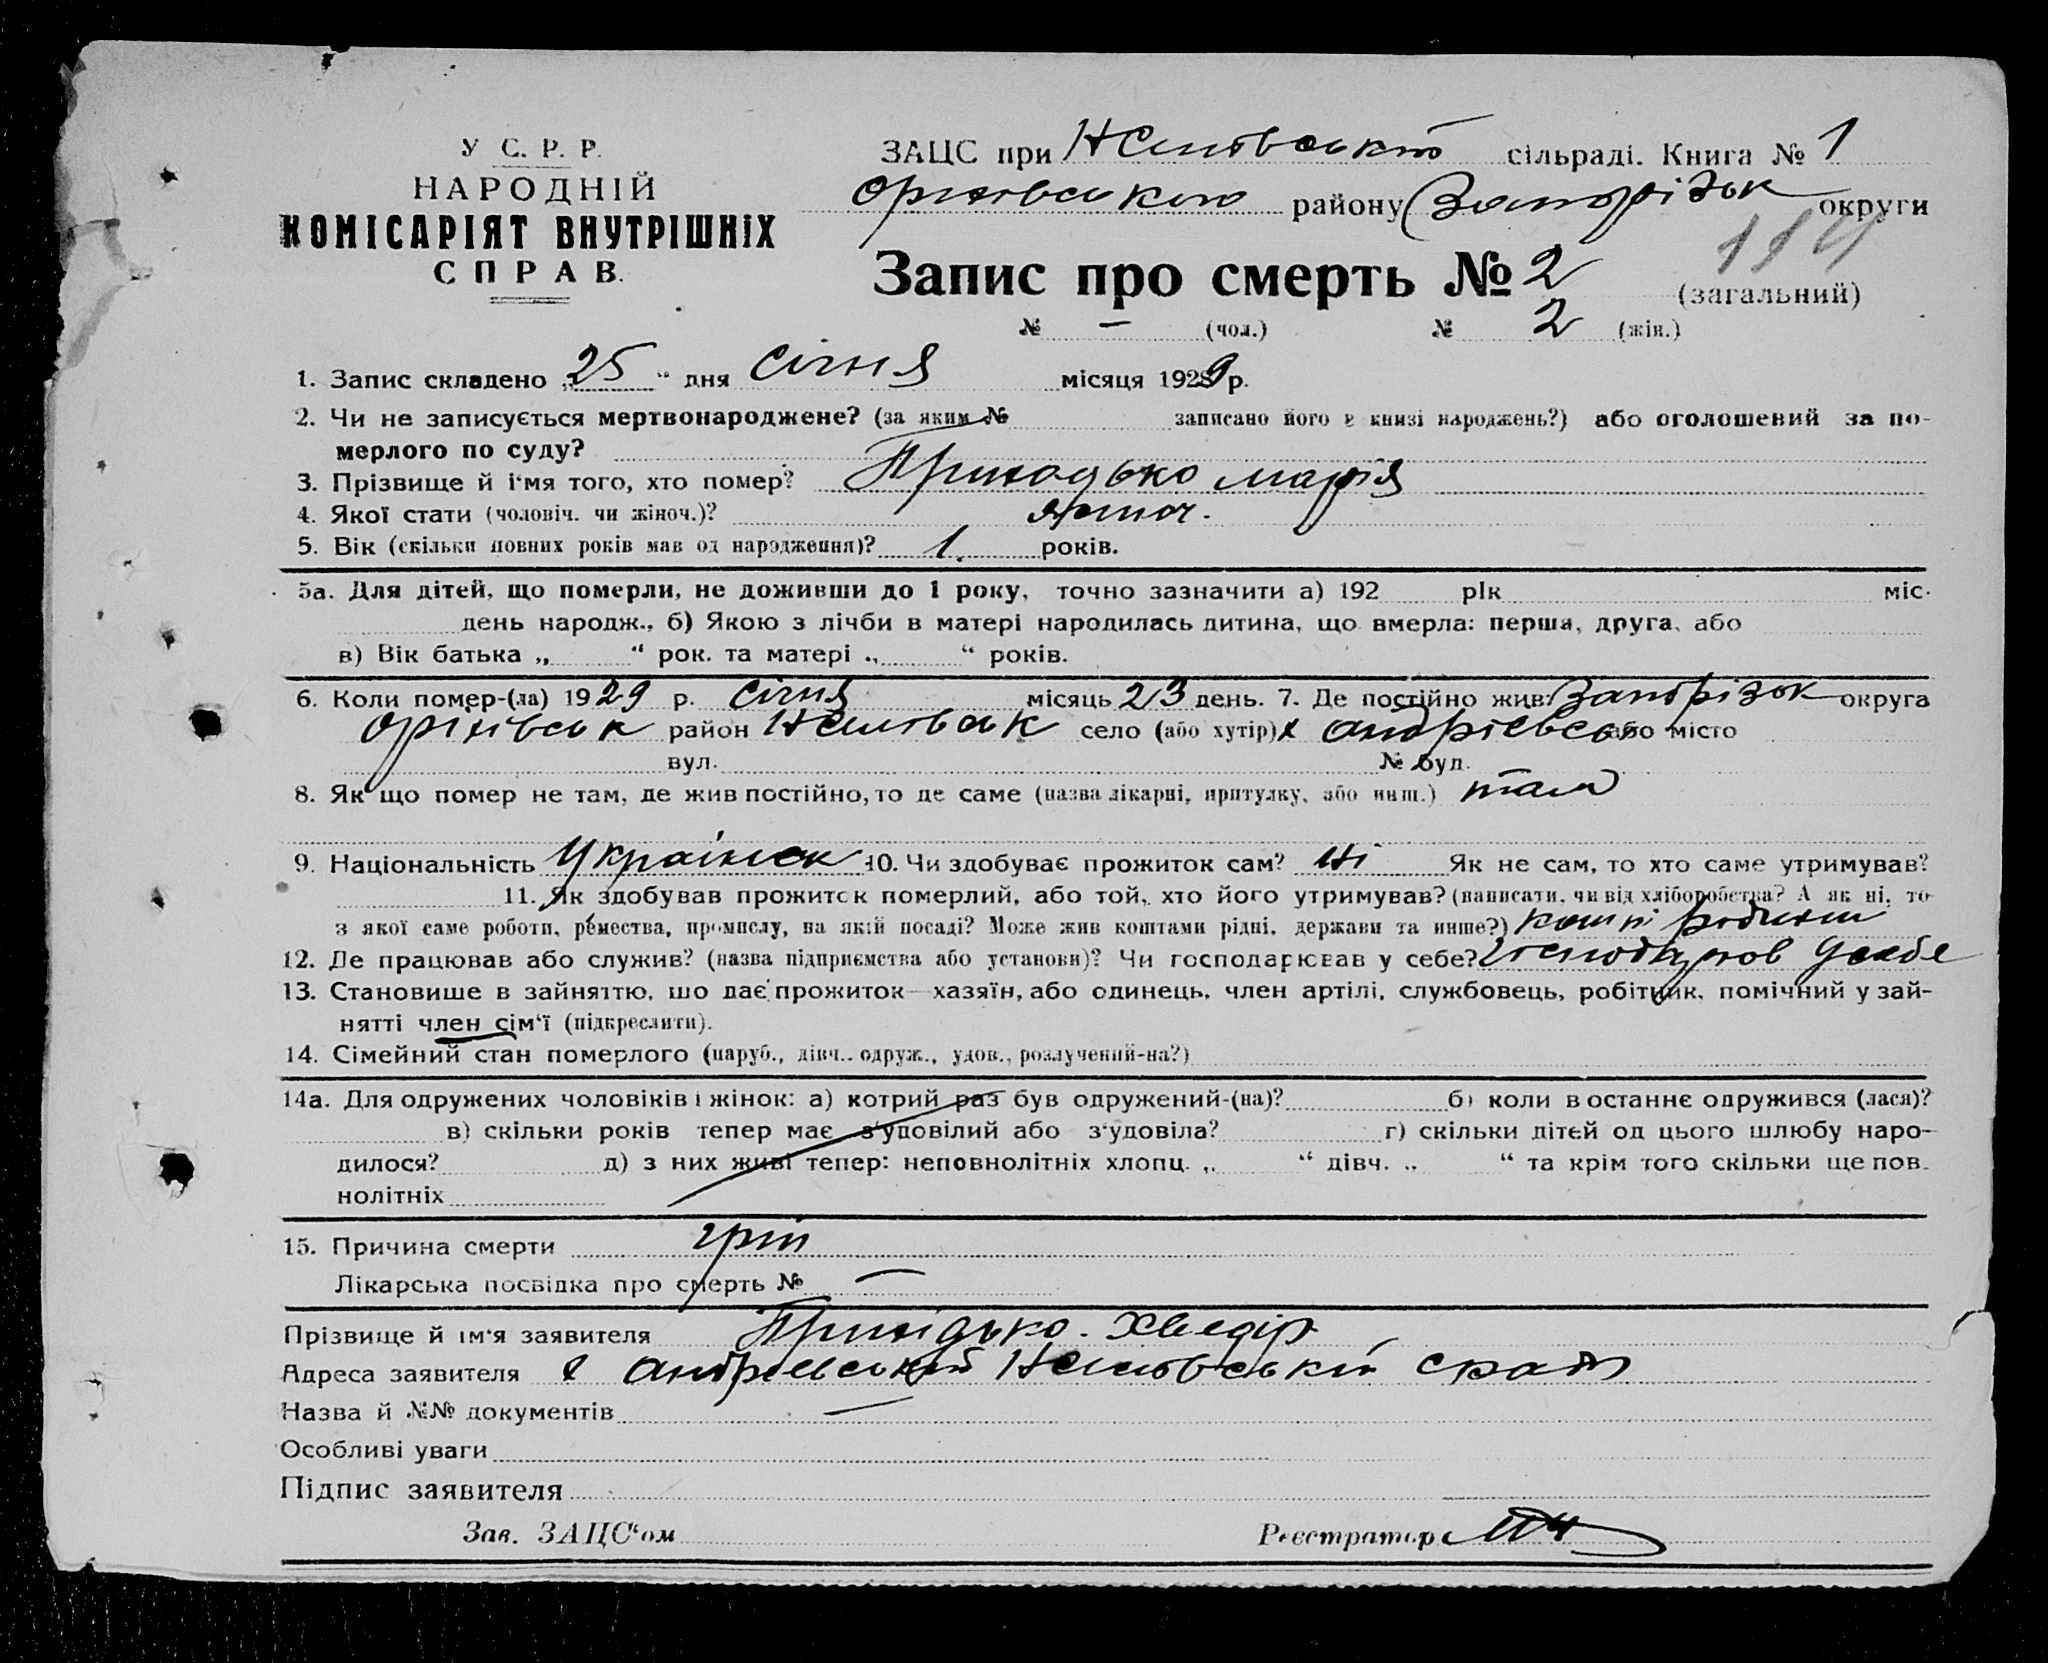 У С. Р. Р.
НАРОДНІЙ
КОМІСАРІЯТ ВНУТРІШНІХ
СПРАВ.
ЗАЦС при сільраді. Книга № 1
району Запоріжськ округи
114
Запис про смерть № 2 (загальний)
№ — (чол.) № 2 (жін.)
1. Запис складено „25“ дня січня місяця 1929 р.
2. Чи не записується мертвонароджене? (за яким № записано його в книзі народжень?) або оголошений за по-
мерлого по суду?
3. Прізвище й і'мя того, хто помер? Приходько Марія
4. Якої стати (чоловіч. чи жіноч.)? жіноч.
5. Вік (скільки повних років мав од народження)? 1. років.
5а. Для дітей, що померли, не доживши до 1 року, точно зазначити а) 192 рік міс.
день народж., б) Якою з лічби в матері народилась дитина, що вмерла: перша, друга, або
в) Вік батька „ “ рок. та матері „ “ років.
6. Коли помер-(ла) 1929 р. січня місяць 23 день. 7. Де постійно жив: Запоріжськ округа
район село (або хутір) х Андрієвськ або місто
вул. № буд.
8. Як що помер не там, де жив постійно, то де саме (назва лікарні, притулку, або инш.) там
9. Національність Українськ 10. Чи здобуває прожиток сам? Ні Як не сам, то хто саме утримував?
11. Як здобував прожиток померлий, або той, хто його утримував? (написати, чи від хліборобства? А як ні, то
з якої саме роботи, ремества, промислу, на якій посаді? Може жив коштами рідні, держави та инше?)
12. Де працював або служив? (назва підприємства або установи)? Чи господарював у себе?
13. Становище в зайняттю, що дає прожиток—хазяїн, або одинець, член артілі, службовець, робітник, помічний у зай-
нятті член сім'ї (підкреслити).
14. Сімейний стан померлого (паруб., дівч., одруж., удов., розлучений-на?)
14а. Для одружених чоловіків і жінок: а) котрий раз був одружений-(на)? б) коли в останнє одружився (лася)?
в) скільки років тепер має з'удовілий або з'удовіла? г) скільки дітей од цього шлюбу наро-
дилося? д) з них живі тепер: неповнолітніх хлопц. „ “ дівч. „ “ та крім того скільки ще пов-
нолітніх
15. Причина смерти гріп
Лікарська посвідка про смерть № —
Прізвище й ім'я заявителя Приходько. Хведір
Адреса заявителя х Андрієвський
Назва й №№ документів —
Особливі уваги
Підпис заявителя
Зав. ЗАЦС'ом Реєстратор